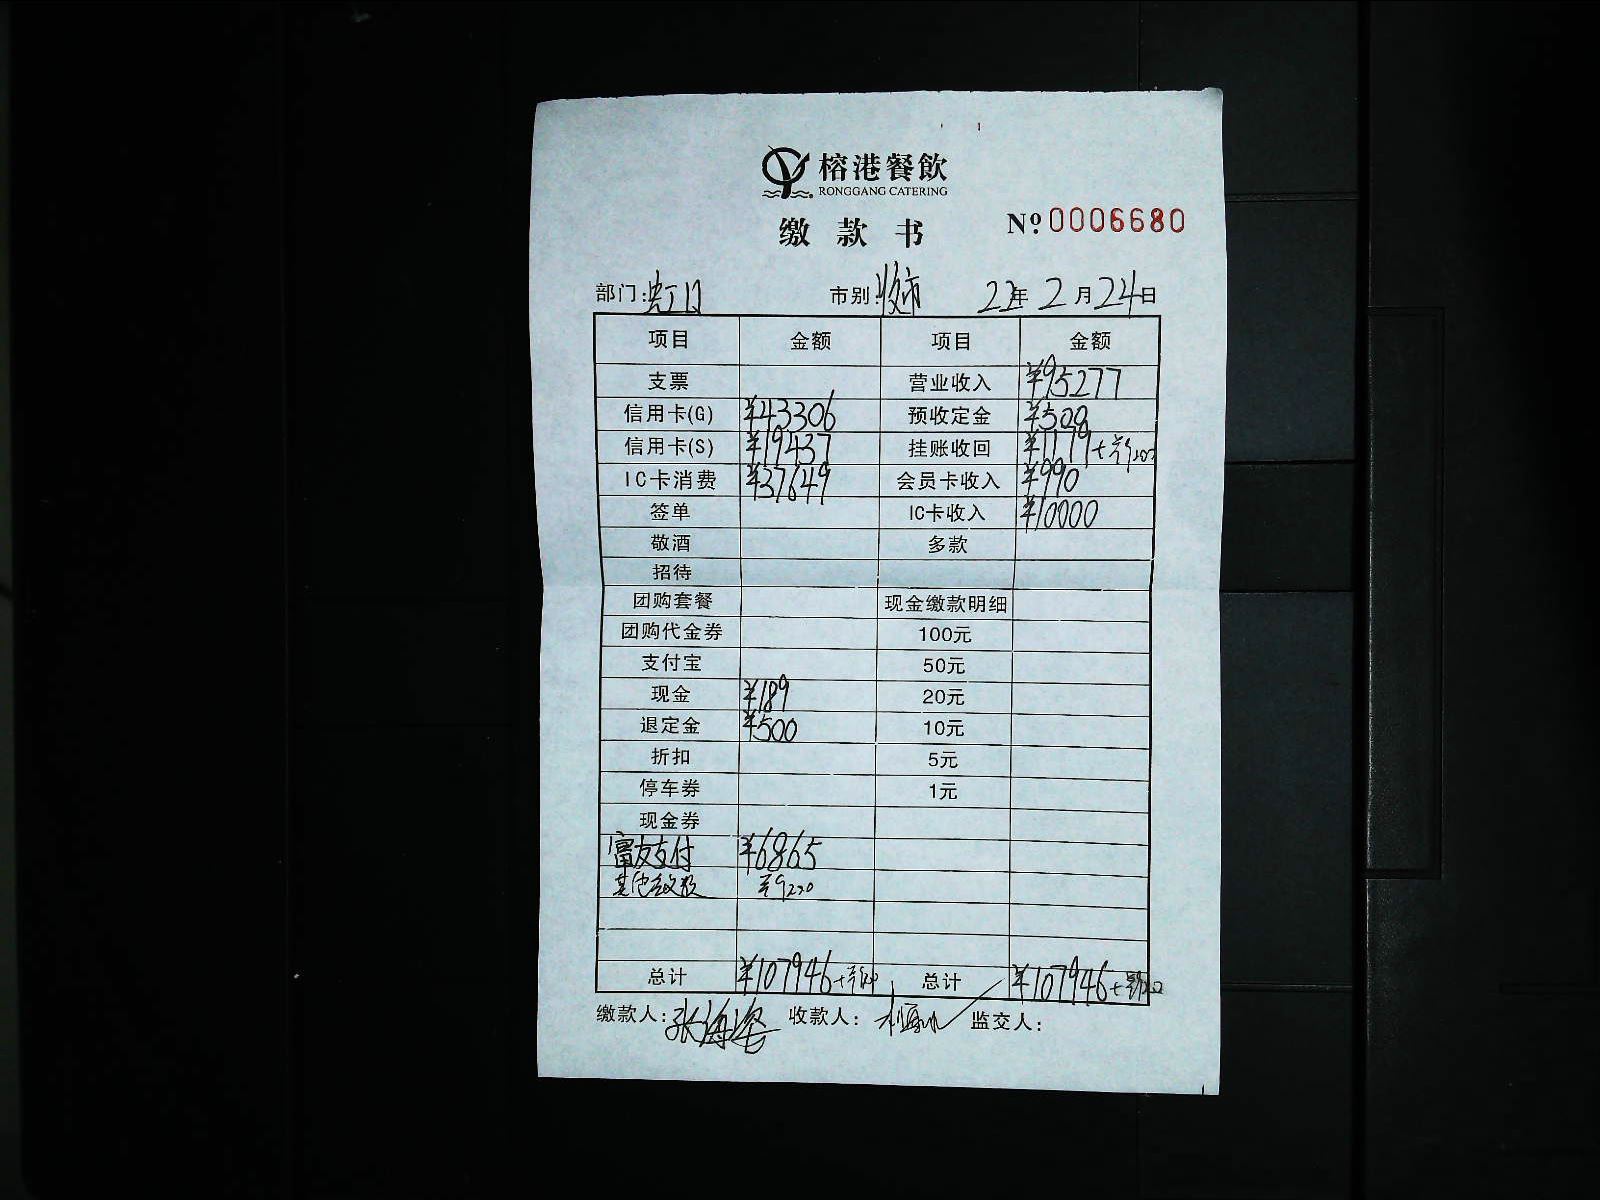 榕港餐飲
RONGGANG CATERING
缴款书 №0006680
部门:虹口 市别:收市 22年2月24日
项目 金额 项目 金额
支票 营业收入 ¥95277
信用卡(G) ¥43306 预收定金 ¥500
信用卡(S) ¥19437 挂账收回 ¥1179+
IC卡消费 ¥37649 会员卡收入 ¥990
签单 IC卡收入 ¥10000
敬酒 多款
招待
团购套餐 现金缴款明细
团购代金券 100元
支付宝 50元
现金 ¥189 20元
退定金 ¥500 10元
折扣 5元
停车券 1元
现金券
富友支付 ¥6865
其他
总计 ¥107946+ 总计 ¥107946+
缴款人: 张海 收款人: 监交人: